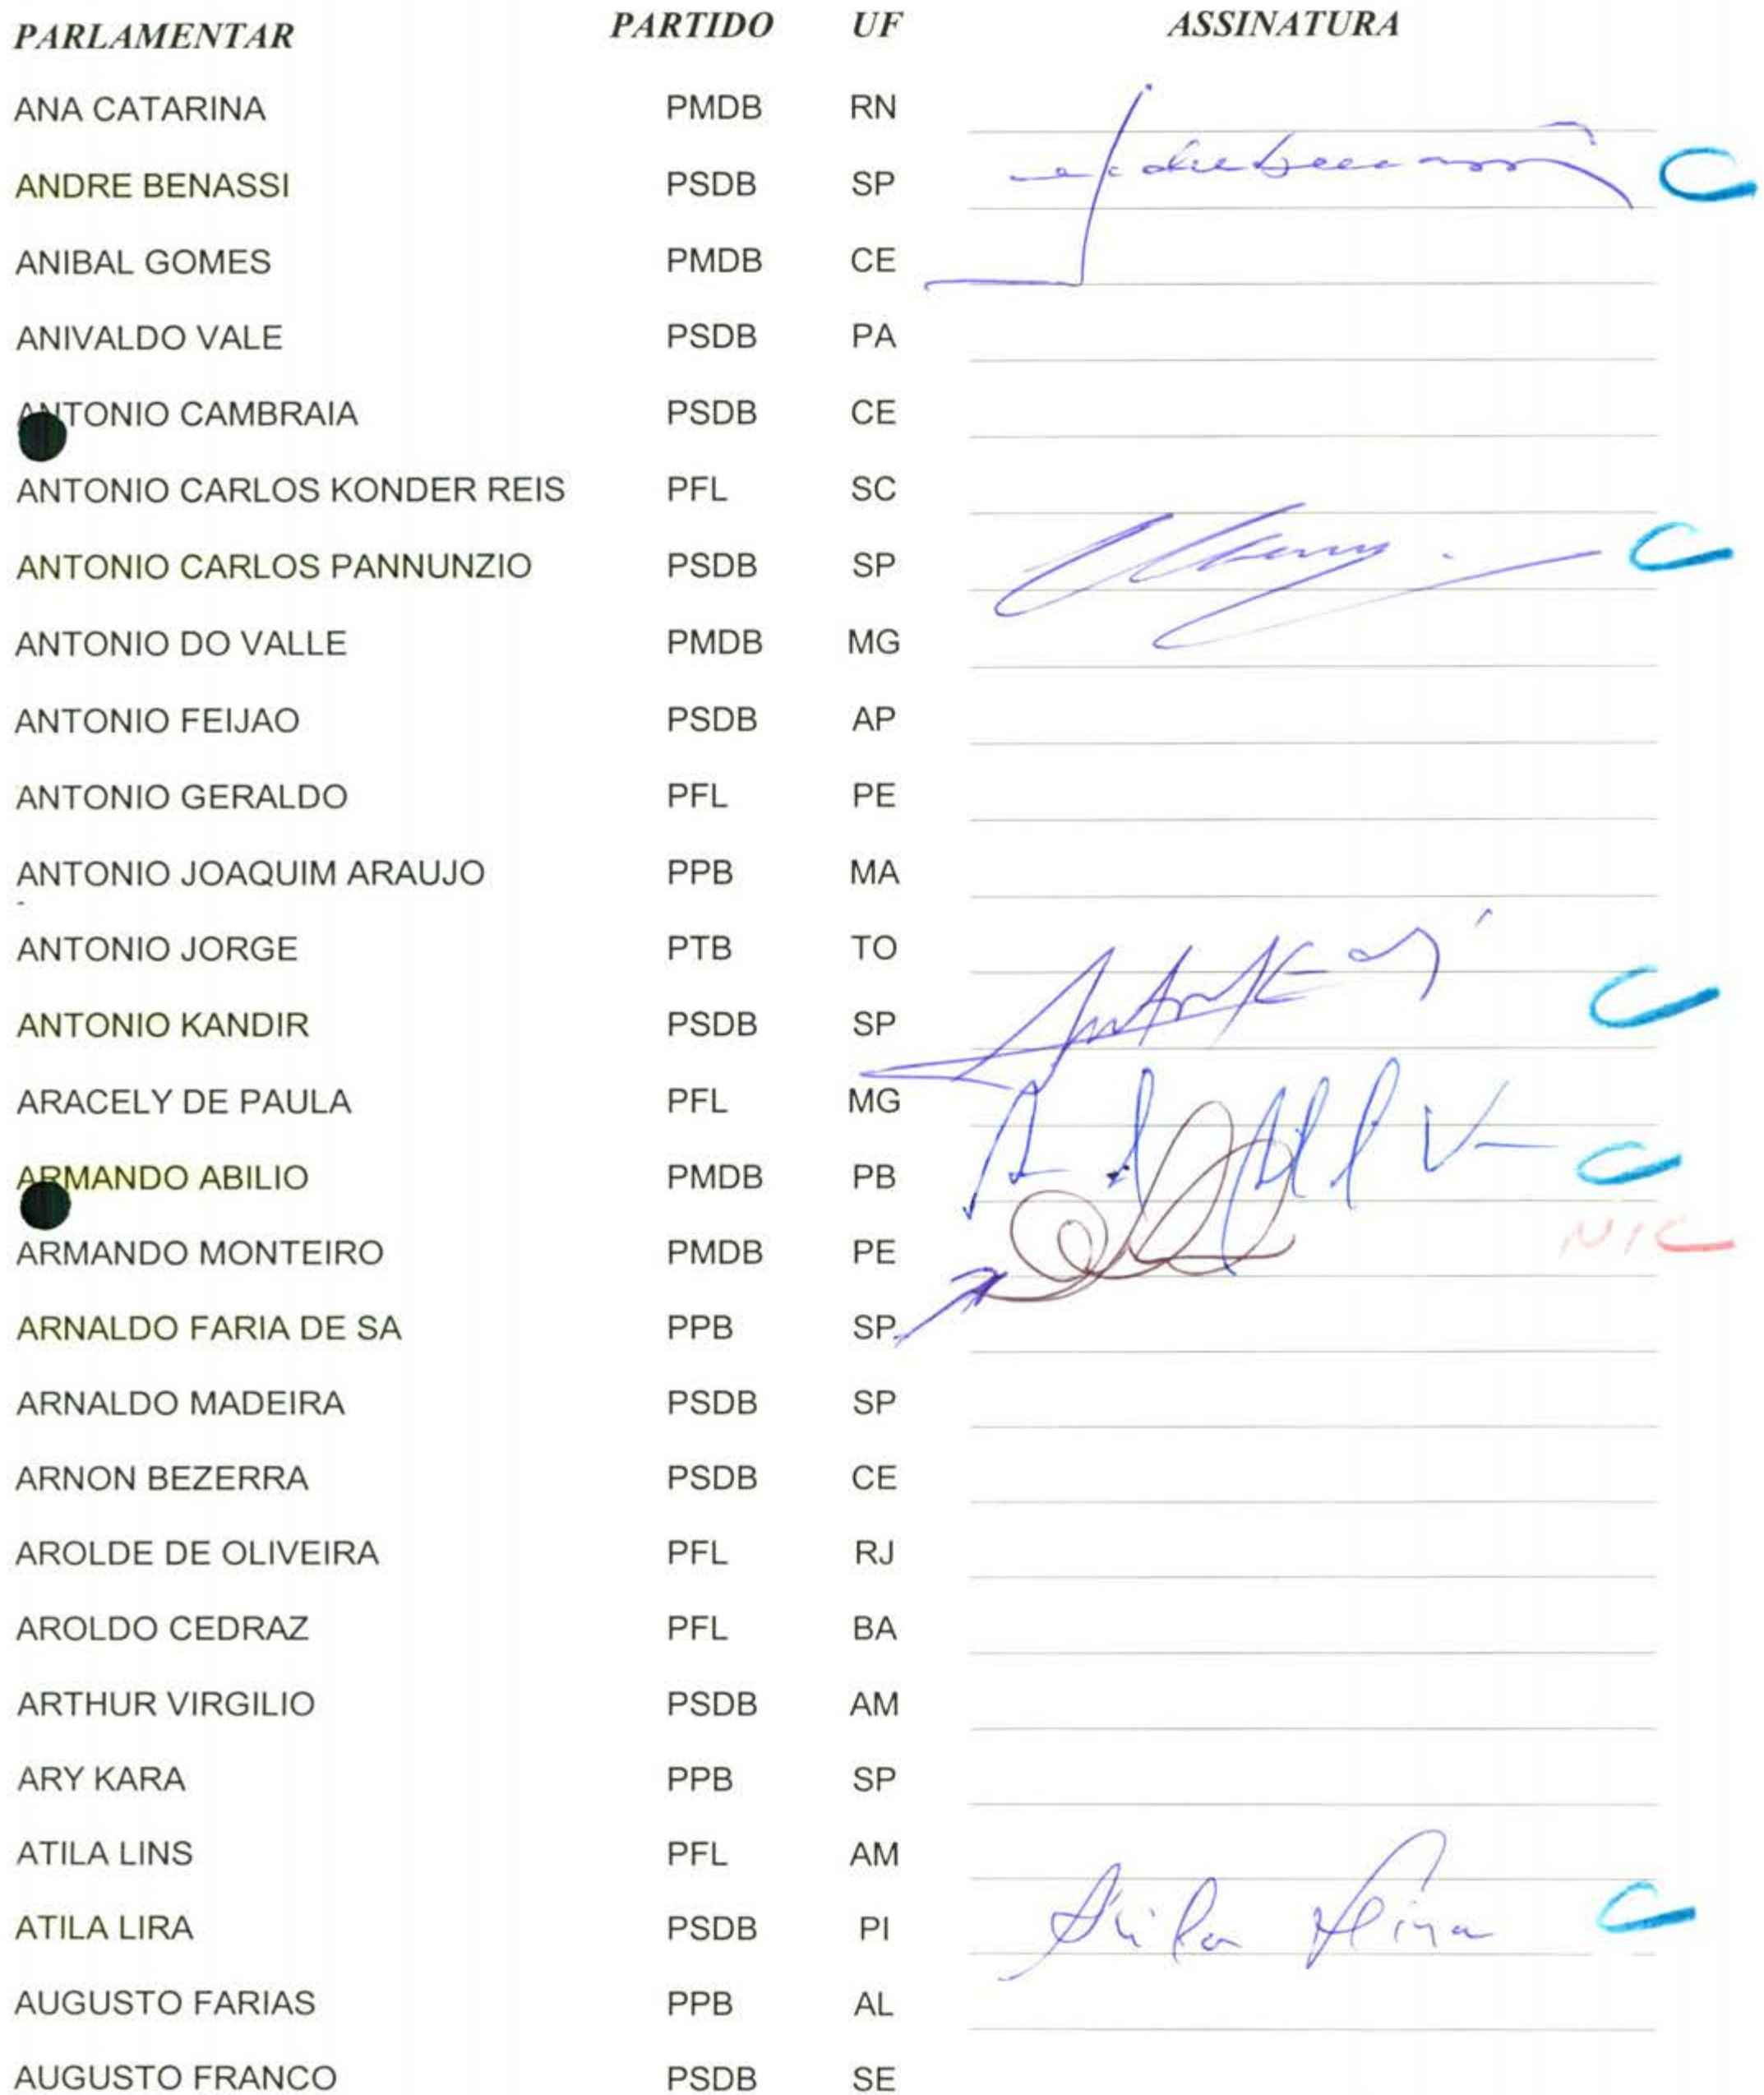 PARLAMENTAR PARTIDO UF ASSINATURA
ANA CATARINA PMDB RN
ANDRE BENASSI PSDB SP C
ANIBAL GOMES PMDB CE
ANIVALDO VALE PSDB PA
ANTONIO CAMBRAIA PSDB CE
ANTONIO CARLOS KONDER REIS PFL SC
ANTONIO CARLOS PANNUNZIO PSDB SP C
ANTONIO DO VALLE PMDB MG
ANTONIO FEIJAO PSDB AP
ANTONIO GERALDO PFL PE
ANTONIO JOAQUIM ARAUJO PPB MA
ANTONIO JORGE PTB TO
ANTONIO KANDIR PSDB SP C
ARACELY DE PAULA PFL MG
ARMANDO ABILIO PMDB PB C
ARMANDO MONTEIRO PMDB PE N/C
ARNALDO FARIA DE SA PPB SP
ARNALDO MADEIRA PSDB SP
ARNON BEZERRA PSDB CE
AROLDE DE OLIVEIRA PFL RJ
AROLDO CEDRAZ PFL BA
ARTHUR VIRGILIO PSDB AM
ARY KARA PPB SP
ATILA LINS PFL AM
ATILA LIRA PSDB PI Atila Lira C
AUGUSTO FARIAS PPB AL
AUGUSTO FRANCO PSDB SE